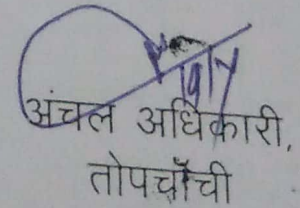 अंचल अधिकारी,
तोपचाँची